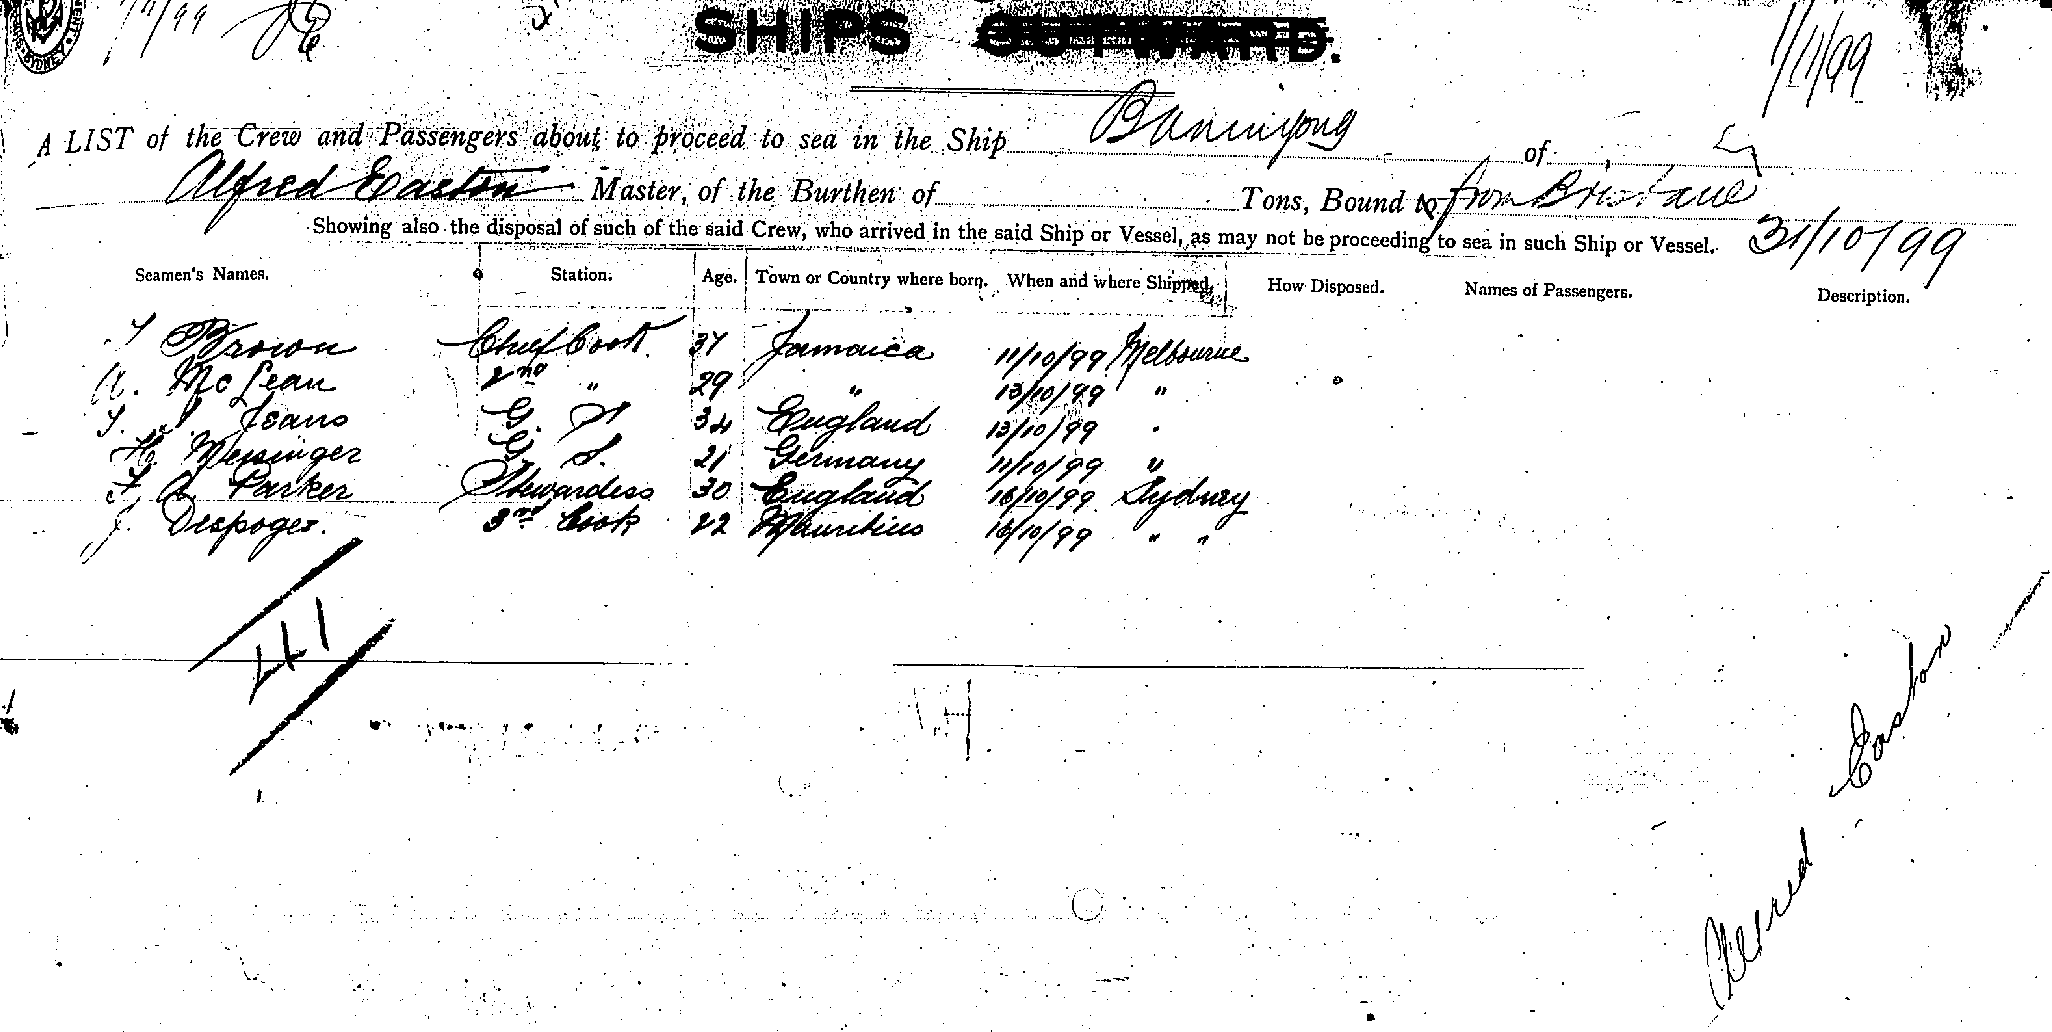 SYDNEY
SHIPS OUTWARD.
1/11/99
A LIST of the Crew and Passengers about to proceed to sea in the Ship Buninyong of
Alfred Easton Master, of the Burthen of Tons, Bound to from Brisbane
Showing also the disposal of such of the said Crew, who arrived in the said Ship or Vessel, as may not be proceeding to sea in such Ship or Vessel. 31/10/99
Seamen's Names. Station. Age. Town or Country where born. When and where Shipped. How Disposed. Names of Passengers. Description.
Brown Chief Cook 37 Jamaica 11/10/99 Melbourne
A. McLean 2nd " 29 " 13/10/99 "
Jeans G. S 34 England 13/10/99 "
H. Messinger G. S. 21 Germany 11/10/99 "
Parker Stewardess 30 England 16/10/99 Sydney
J. Despoges. 3rd Cook 22 Mauritius 16/10/99 " "
41
Alfred Easton